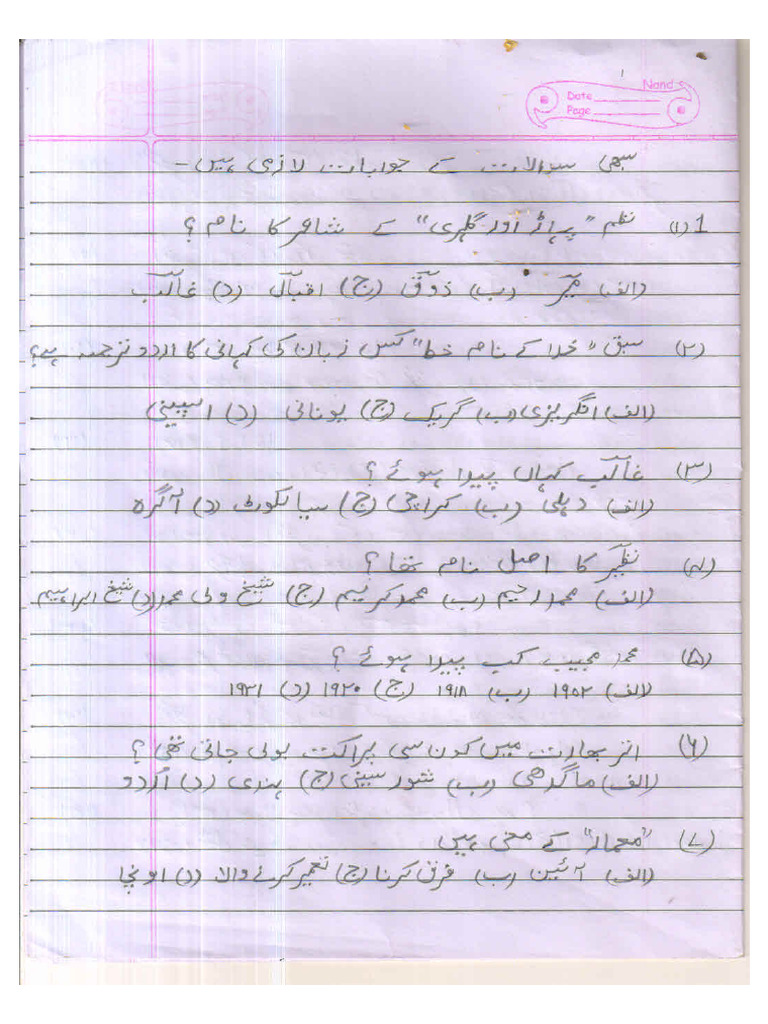 Nand
Date
Page
سبھی سوالات کے جوابات لازمی ہیں۔
1 (۱) نظم "پہاڑ اور گلہری" کے شاعر کا نام؟
(الف) میر (ب) ذوق (ج) اقبال (د) غالب
(۲) سبق "خدا کے نام خط" کس زبان کی کہانی کا اردو ترجمہ ہے؟
(الف) انگریزی (ب) گریک (ج) یونانی (د) اسپینی
(۳) غالب کہاں پیدا ہوئے؟
(الف) دہلی (ب) کراچی (ج) سیالکوٹ (د) آگرہ
(۴) نظیر کا اصل نام تھا؟
(الف) محمد رحیم (ب) محمد کریم (ج) شیخ ولی محمد (د) شیخ ابراہیم
(۵) محمد مجیب کب پیدا ہوئے؟
(الف) ۱۹۰۲ (ب) ۱۹۱۸ (ج) ۱۹۲۰ (د) ۱۹۲۱
(۶) اتر بھارت میں کون سی پراکت بولی جاتی تھی؟
(الف) ماگدھی (ب) شورسینی (ج) ہندی (د) اُردو
(۷) "معمار" کے معنی ہیں
(الف) آئین (ب) فرق کرنا (ج) تعمیر کرنے والا (د) اونچا